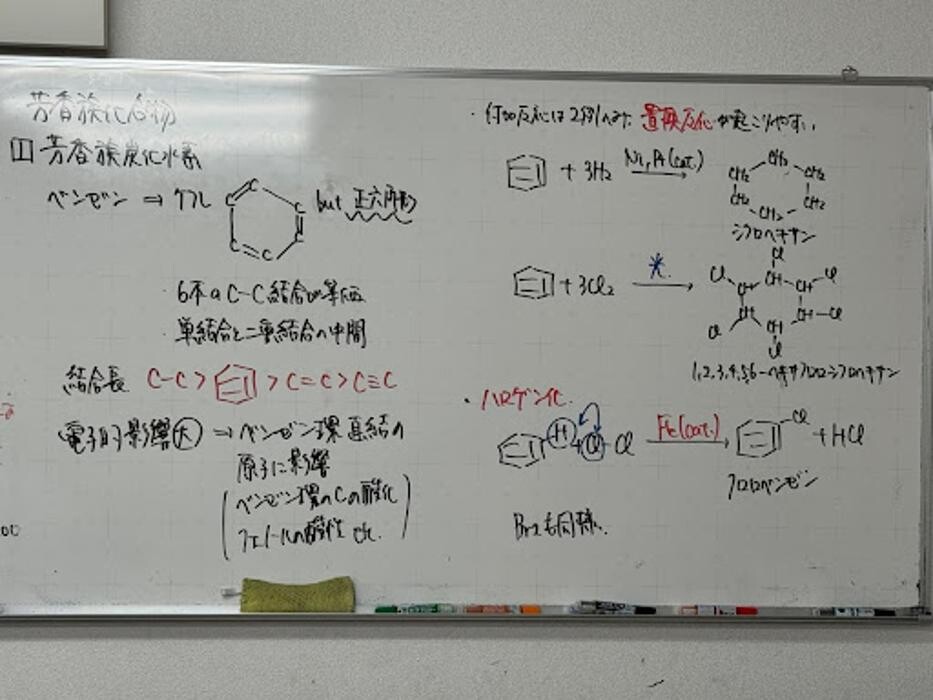 芳香族化合物
1 芳香族炭化水素
ベンゼン ⇒ ケクレ but 正六角形
C C C C C C
・6本のC-C結合は等価
・単結合と二重結合の中間
結合長 C-C > > C=C > C≡C
電子的影響(大) ⇒ ベンゼン環直結の
原子に影響
(ベンゼン環のCの酸化
フェノールの酸性 etc.)
・付加反応は2例のみで 置換反応が起こりやすい。
+ 3H2 Ni, Pt(cat.) →
CH2 CH2 CH2 CH2 CH2 CH2
シクロヘキサン
+ 3Cl2 光 →
Cl Cl CH Cl CH CH CH CH Cl Cl CH Cl
1,2,3,4,5,6-ヘキサクロロシクロヘキサン
・ハロゲン化
H + Cl Cl Fe(cat.) → Cl + HCl
クロロベンゼン
Br2も同様.